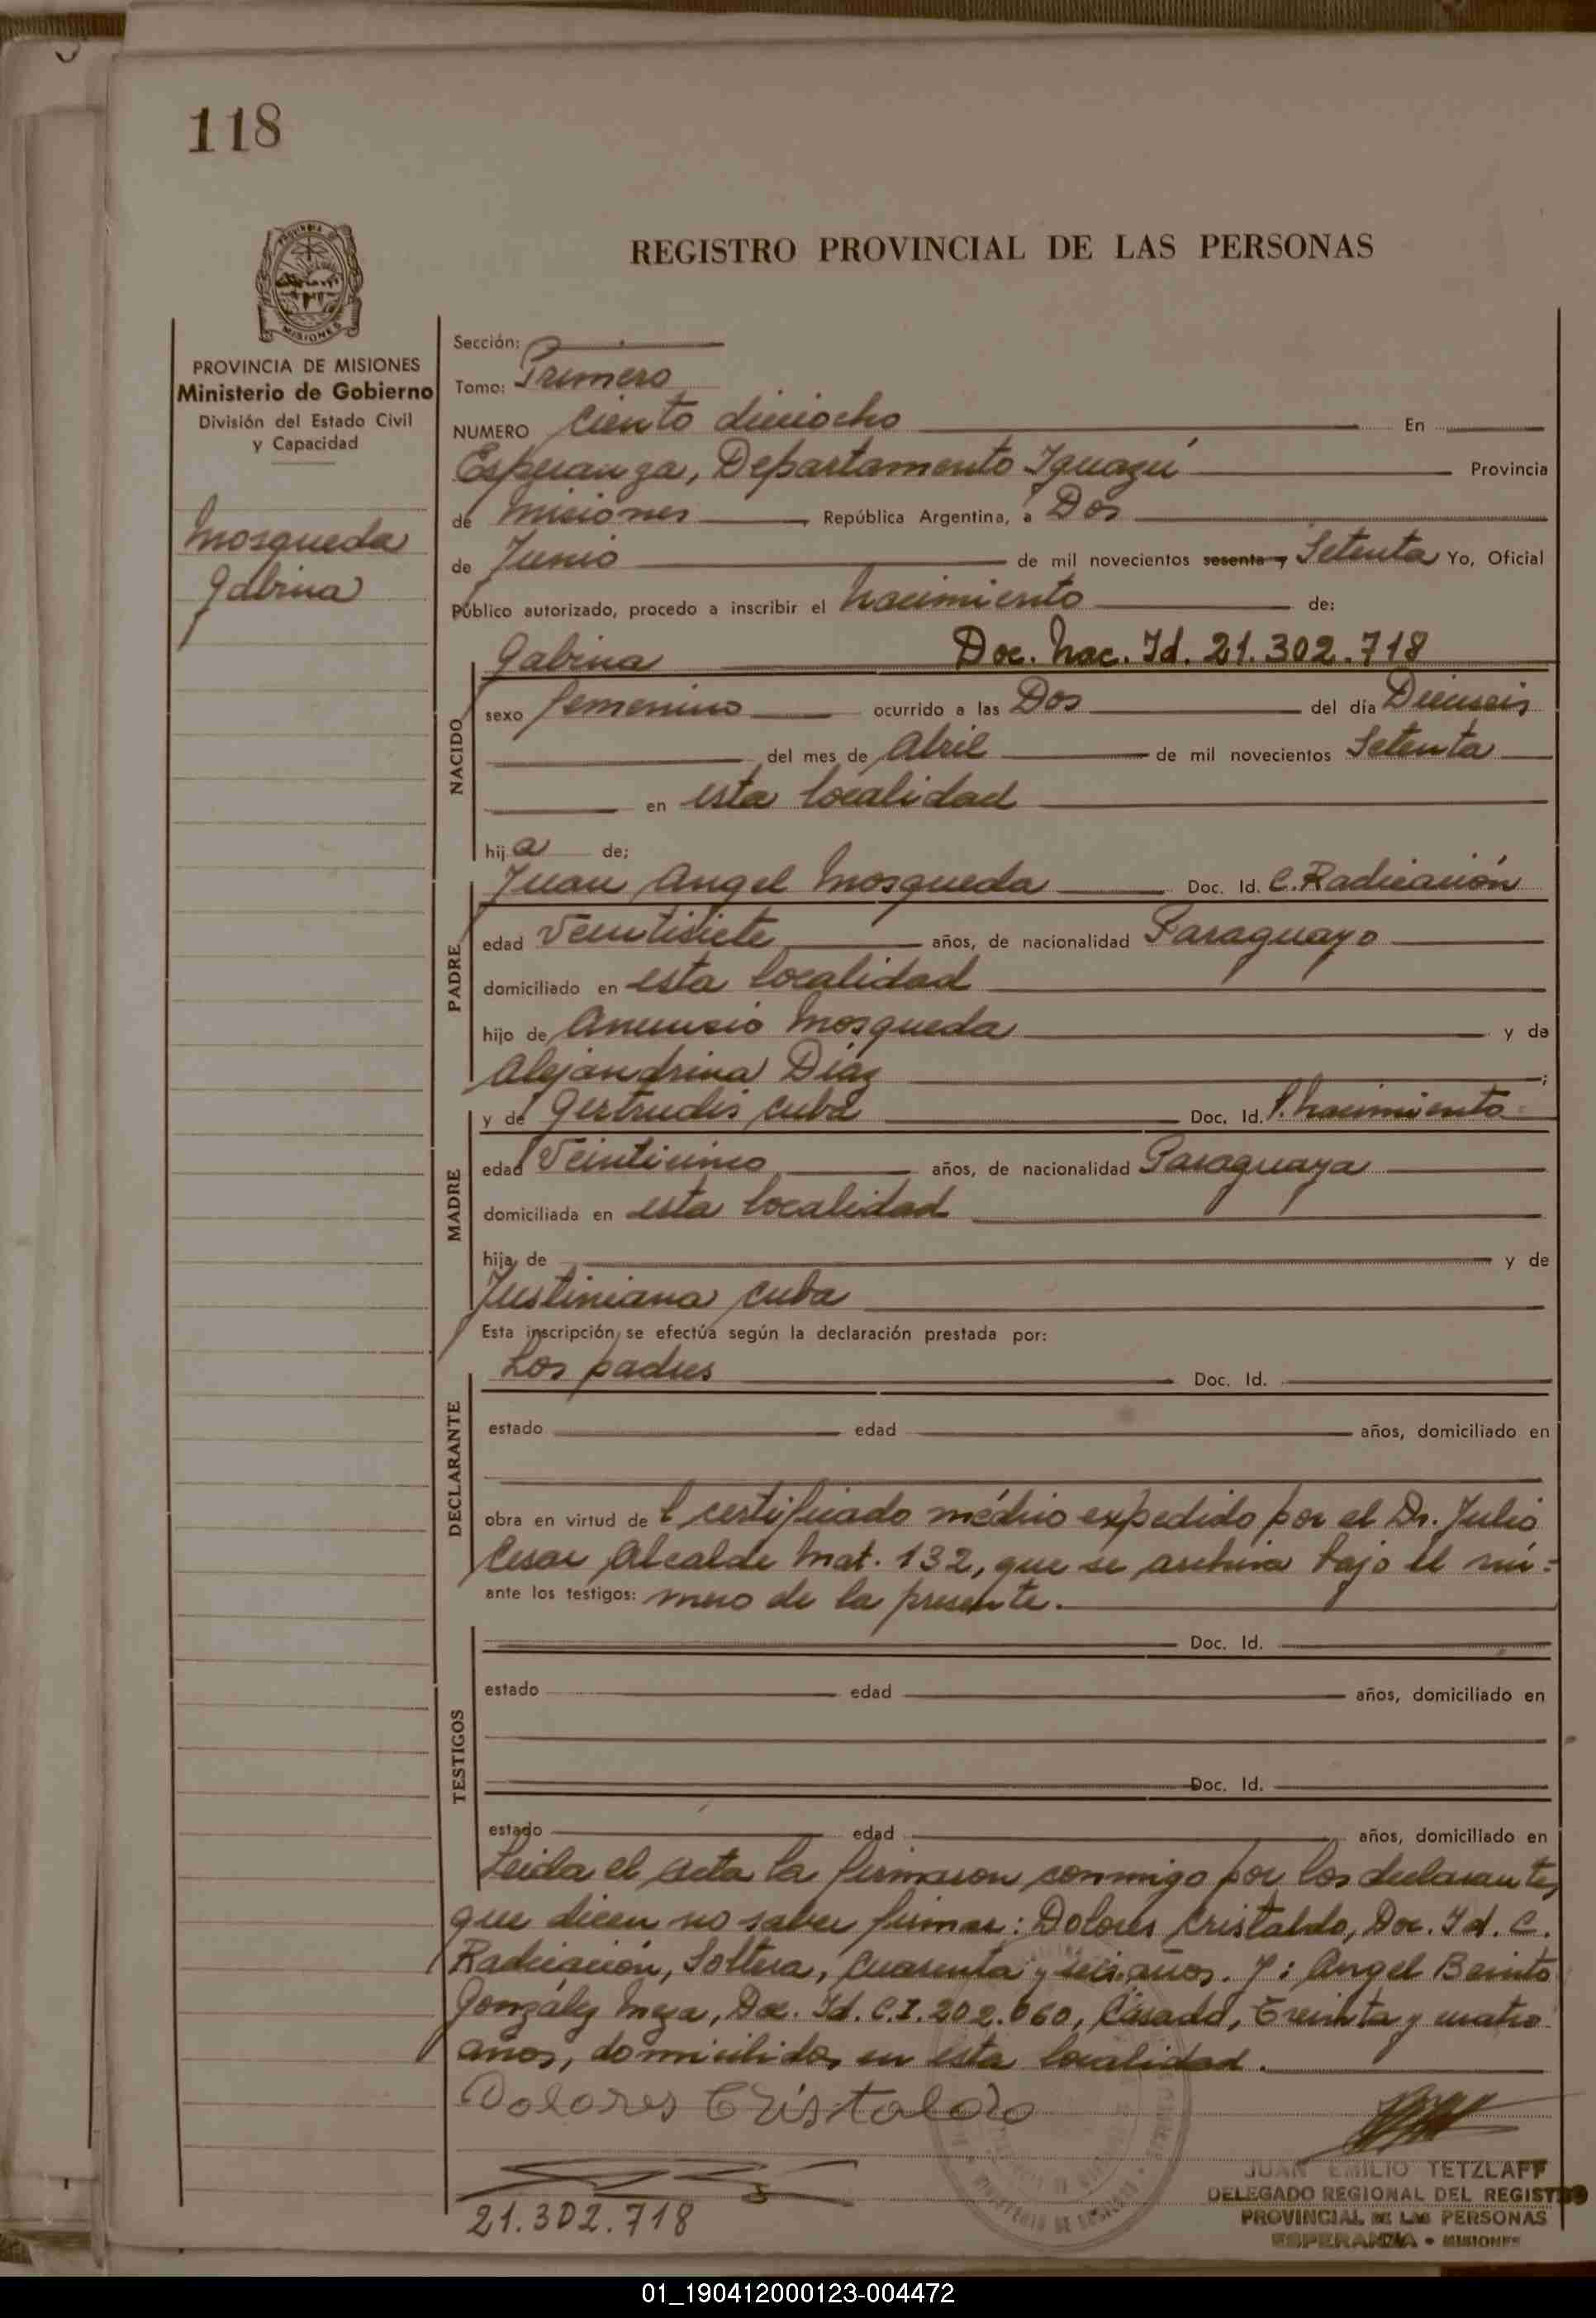 118
REGISTRO PROVINCIAL DE LAS PERSONAS
PROVINCIA DE MISIONES
MISIONES
PROVINCIA DE MISIONES
Ministerio de Gobierno
División del Estado Civil
y Capacidad
Mosqueda
Gabina
Sección:
Tomo: Primero
NUMERO Ciento dieciocho En
Esperanza, Departamento Iguazú Provincia
de Misiones República Argentina, a Dos
de Junio de mil novecientos sesenta y Setenta Yo, Oficial
Público autorizado, procedo a inscribir el nacimiento de:
NACIDO
Gabina Doc. Nac. Id. 21.302.718
sexo femenino ocurrido a las Dos del día Dieciseis
del mes de Abril de mil novecientos Setenta
en esta localidad
hija de;
PADRE
Juan Angel Mosqueda Doc. Id. C. Radicación
edad Veintisiete años, de nacionalidad Paraguayo
domiciliado en esta localidad
hijo de Anunsio Mosqueda y de
Alejandrina Díaz ;
MADRE
y de Gertrudis Cuba Doc. Id. P. Nacimiento
edad Veinticinco años, de nacionalidad Paraguaya
domiciliada en esta localidad
hija de y de
Justiniana Cuba
Esta inscripción se efectúa según la declaración prestada por:
DECLARANTE
Los padres Doc. Id.
estado edad años, domiciliado en
obra en virtud de l certificado médico expedido por el Dr. Julio
Cesar Alcalde Mat. 132, que se archiva bajo el nú-
ante los testigos: mero de la presente.
TESTIGOS
Doc. Id.
estado edad años, domiciliado en
Doc. Id.
estado edad años, domiciliado en
Leida el acta la firmaron conmigo por los declarantes,
que dicen no saber firmar: Dolores Cristaldo, Doc. Id. C.
Radicación, Soltera, Cuarenta y seis años. Y: Angel Benito
González Meza, Doc. Id. C.I. 202.060, Casado, Treinta y cuatro
años, domicilidos en esta localidad.
Dolores Cristaldo
21.302.718
JUAN EMILIO TETZLAFF
DELEGADO REGIONAL DEL REGISTRO
PROVINCIAL DE LAS PERSONAS
ESPERANZA • MISIONES
01_190412000123-004472